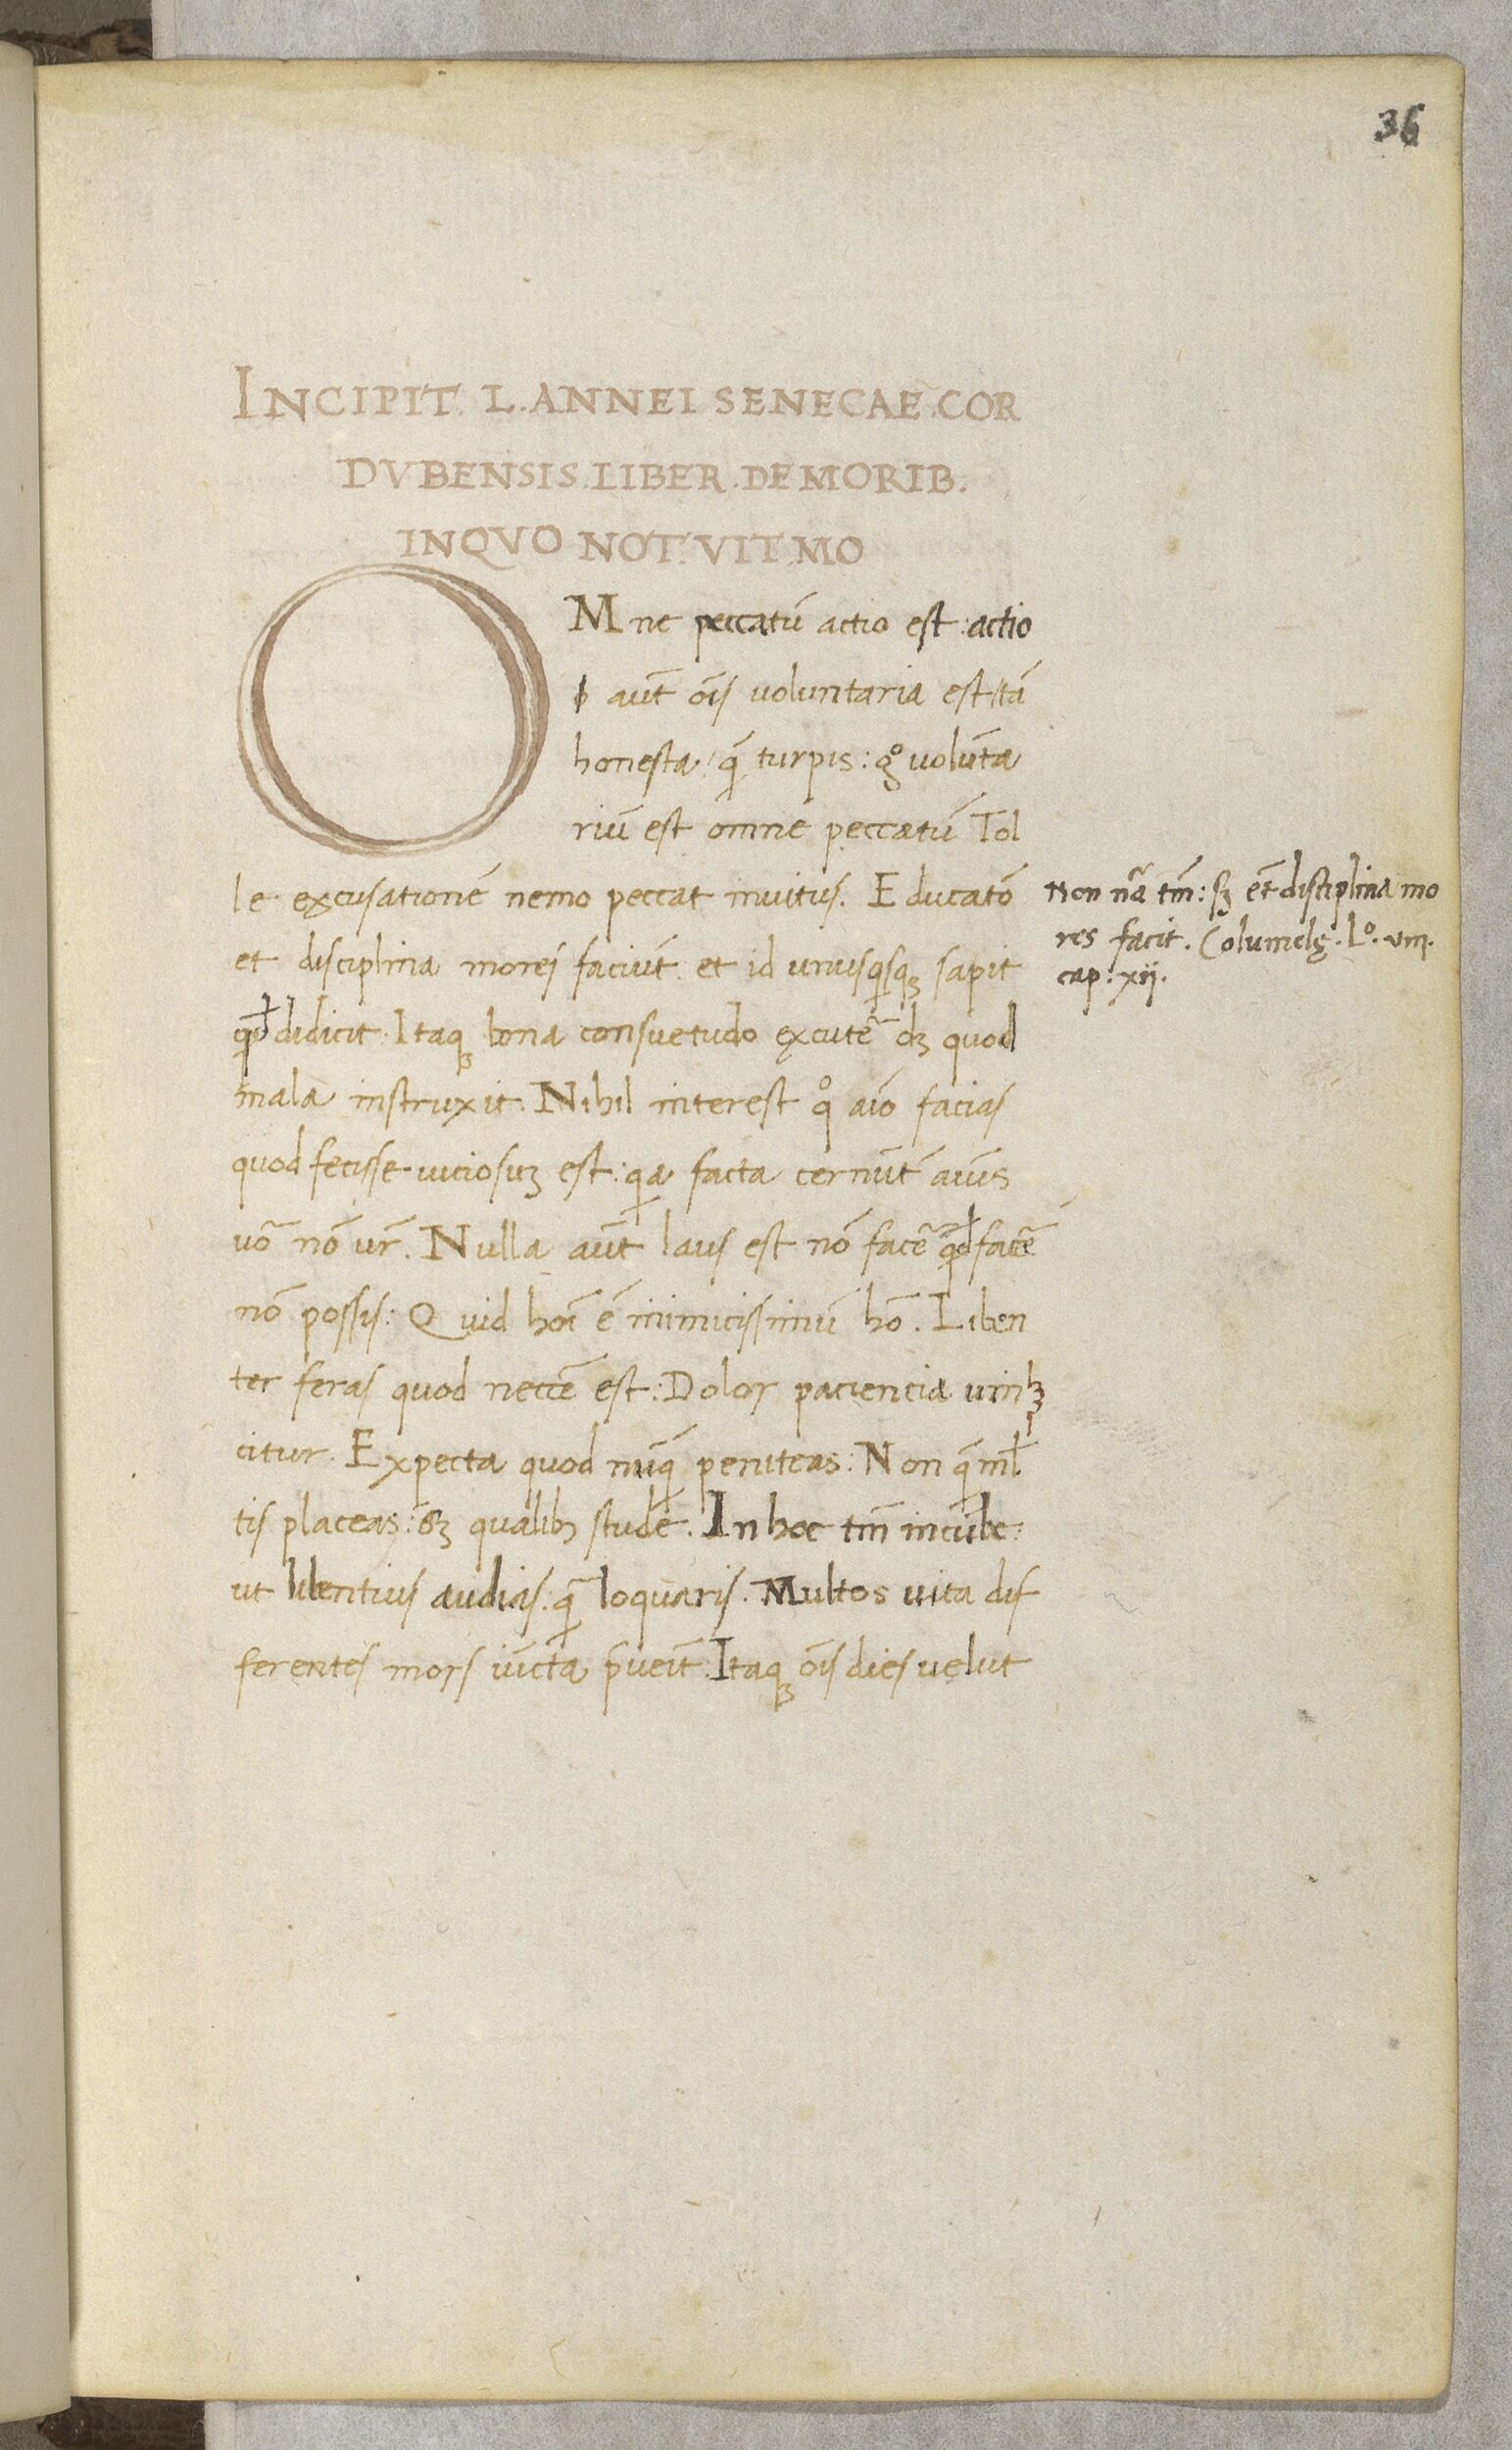 36
INCIPIT. L. ANNEI SENECAE. COR
DVBENSIS. LIBER. DE MORIB.
INQVO NOT. VIT. MO
OMne peccatū actio est: actio
aūt oīs voluntaria est tā
honesta qͣ̄ turpis: gͦ volūta
riū est omne peccatū Tol
le excusationē nemo peccat invitus. Educatō
et disciplina mores faciūt et id unusqͥsqꝫ sapit
qđ didicit. Itaqꝫ bona consuetudo excutē̃ dꝫ quod
mala instruxit. Nihil interest qͦ aīo facias
quod fecisse viciosuꝫ est: qͥa facta cernūt̃ aīus
vō nō vr̃. Nulla aūt laus est nō facē̃ qđ facē̃
nō possis: Quid hoī ē inimicissimū hō. Liben
ter feras quod necē̄ est: Dolor paciencia vin
citur. Expecta quod nūqͣ̄ peniteas: Non qͣ̄ ml̄
tis placeas: sꝫ qualibꝫ stude. In hoc tm̄ incūbe:
ut libentius audias. qͣ̄ loquaris. Multos vita dif
ferentes mors iūcta p̄veīt: Itaqꝫ oīs dies velut
Non nā̃ tm̄: sꝫ et̄ disciplina mo
res facit. Columelę. Lͦ. viij.
cap: xij.